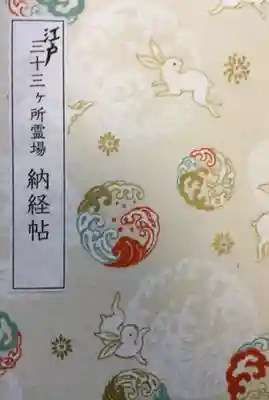 江戸三十三ヶ所霊場 納経帖